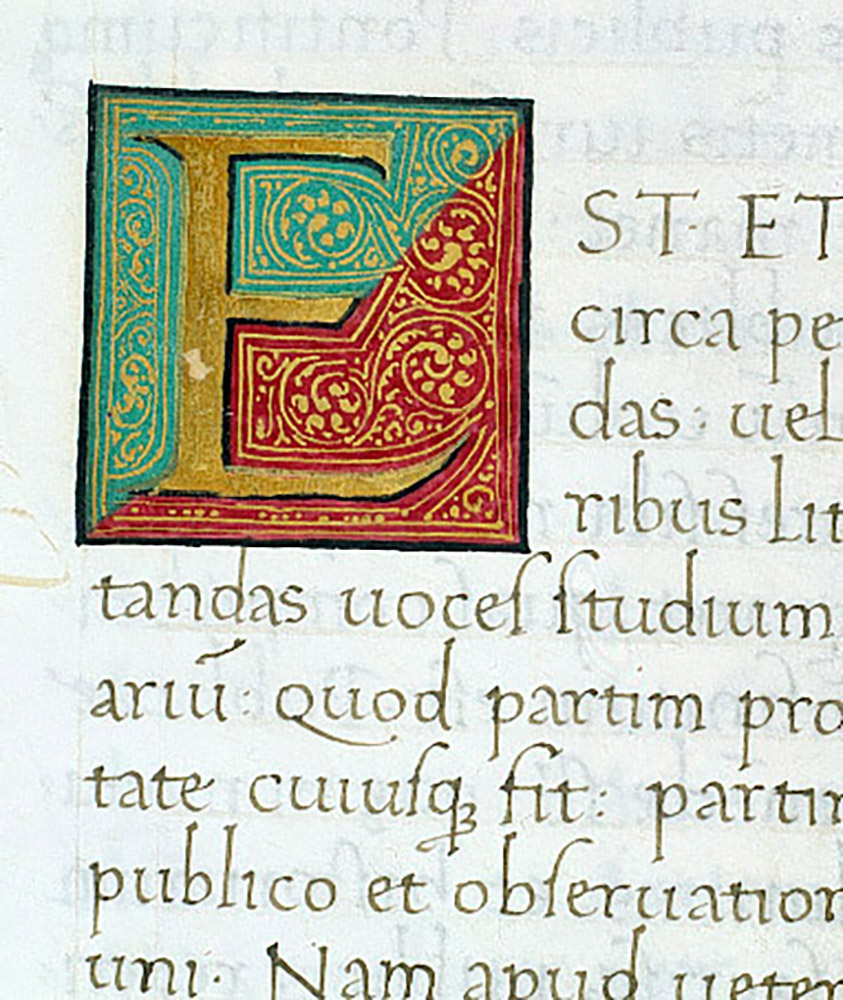 E ST· ET
circa pe
das: uel
ribus Lit
tandas uoceſ ſtudium
ariū: quod partim pro
tate cuiuſqꝫ fit: partin
publico et obſeruation
uni· Nam apud ueter